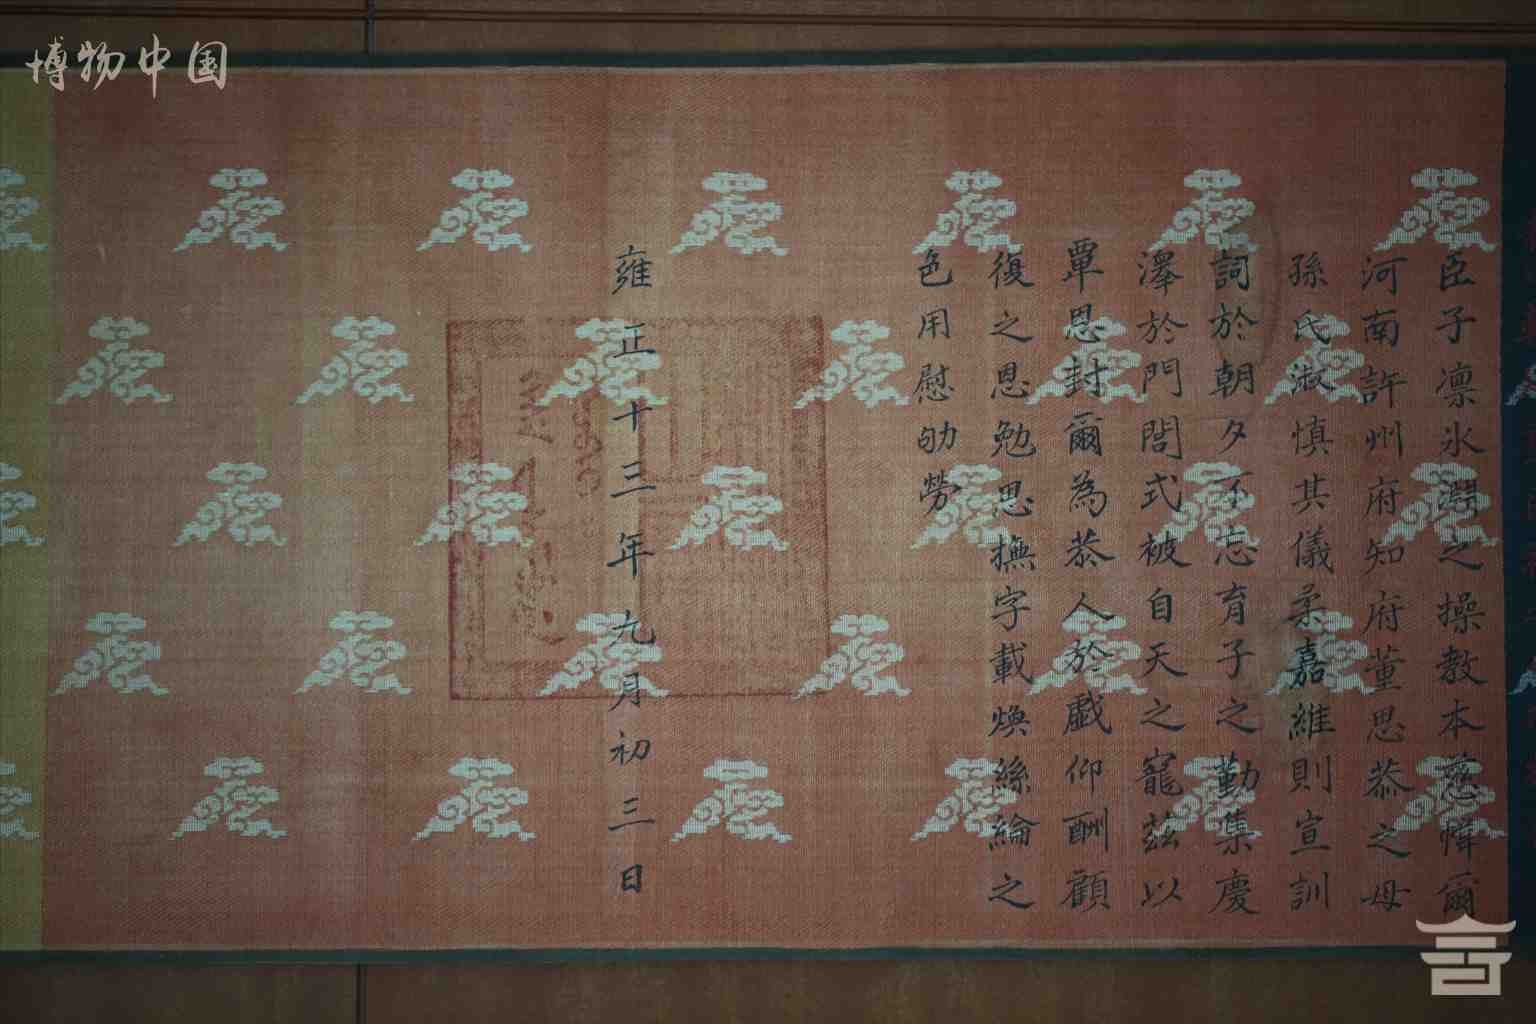 博物中国
臣子凛氷淵之操教本慈幃爾
河南許州府知府董思恭之母
孫氏淑慎其儀柔嘉維則宣訓
詞於朝夕不忘育子之勤集慶
澤於門閭式被自天之寵兹以
覃恩封爾為恭人於戲仰酬顧
復之恩勉思撫字載煥絲綸之
色用慰劬勞
雍正十三年九月初三日